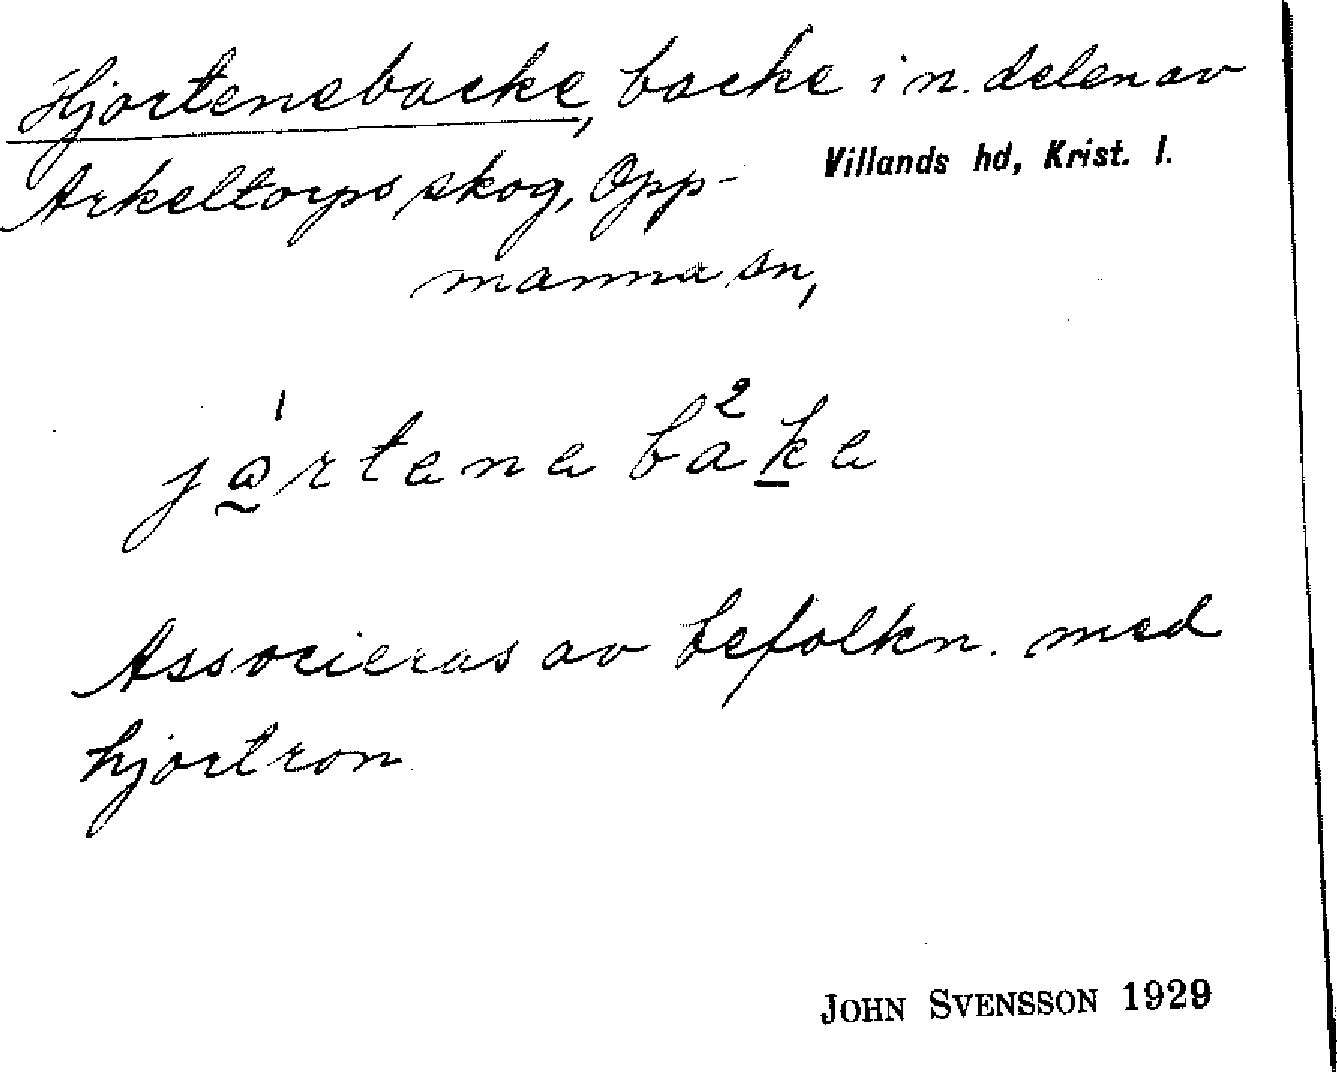 Hjortenebacke, backe i n. delen av
Arkeltorps skog, Opp-
Villands hd, Krist. l.
manna sn,
jartena baka
Associeras av befolkn. med
hjortron
JOHN SVENSSON 1929